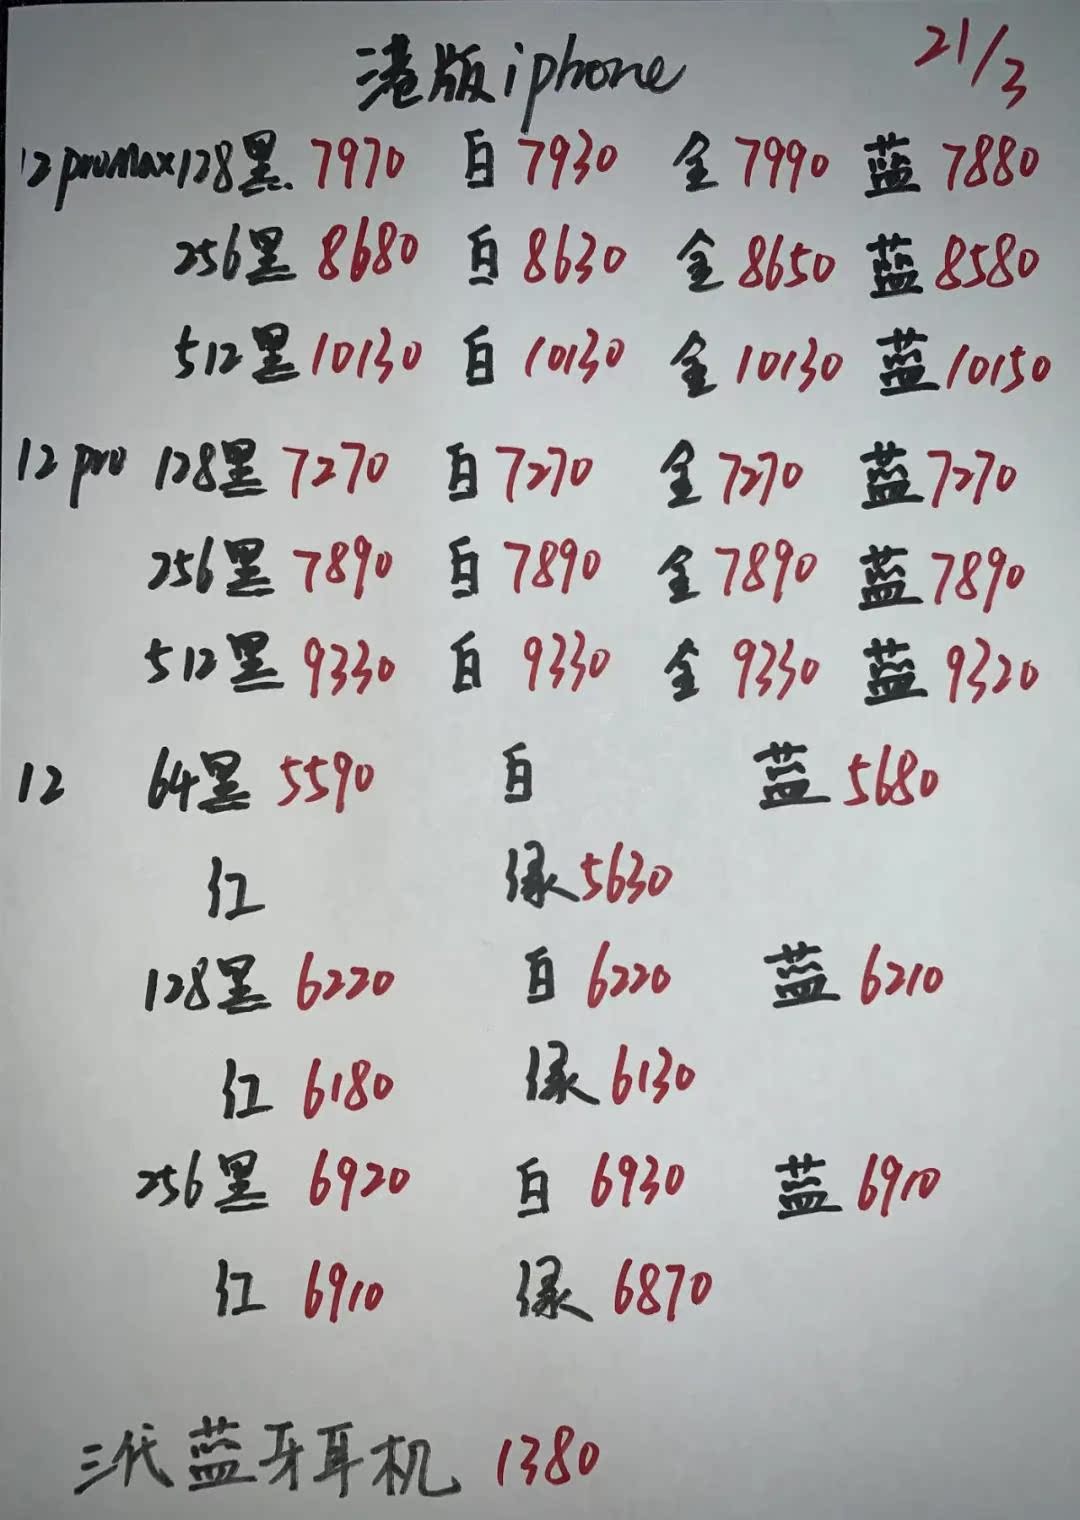 港版iphone 21/3
12promax128黑 7970 白 7930 金 7990 蓝 7880
256黑 8680 白 8630 金 8650 蓝 8580
512黑 10130 白 10130 金 10130 蓝 10150
12 pro 128黑 7270 白 7270 金 7270 蓝 7270
256黑 7890 白 7890 金 7890 蓝 7890
512黑 9330 白 9330 金 9330 蓝 9320
12 64黑 5590 白 蓝 5680
红 绿 5630
128黑 6220 白 6220 蓝 6210
红 6180 绿 6130
256黑 6920 白 6930 蓝 6910
红 6910 绿 6870
三代蓝牙耳机 1380